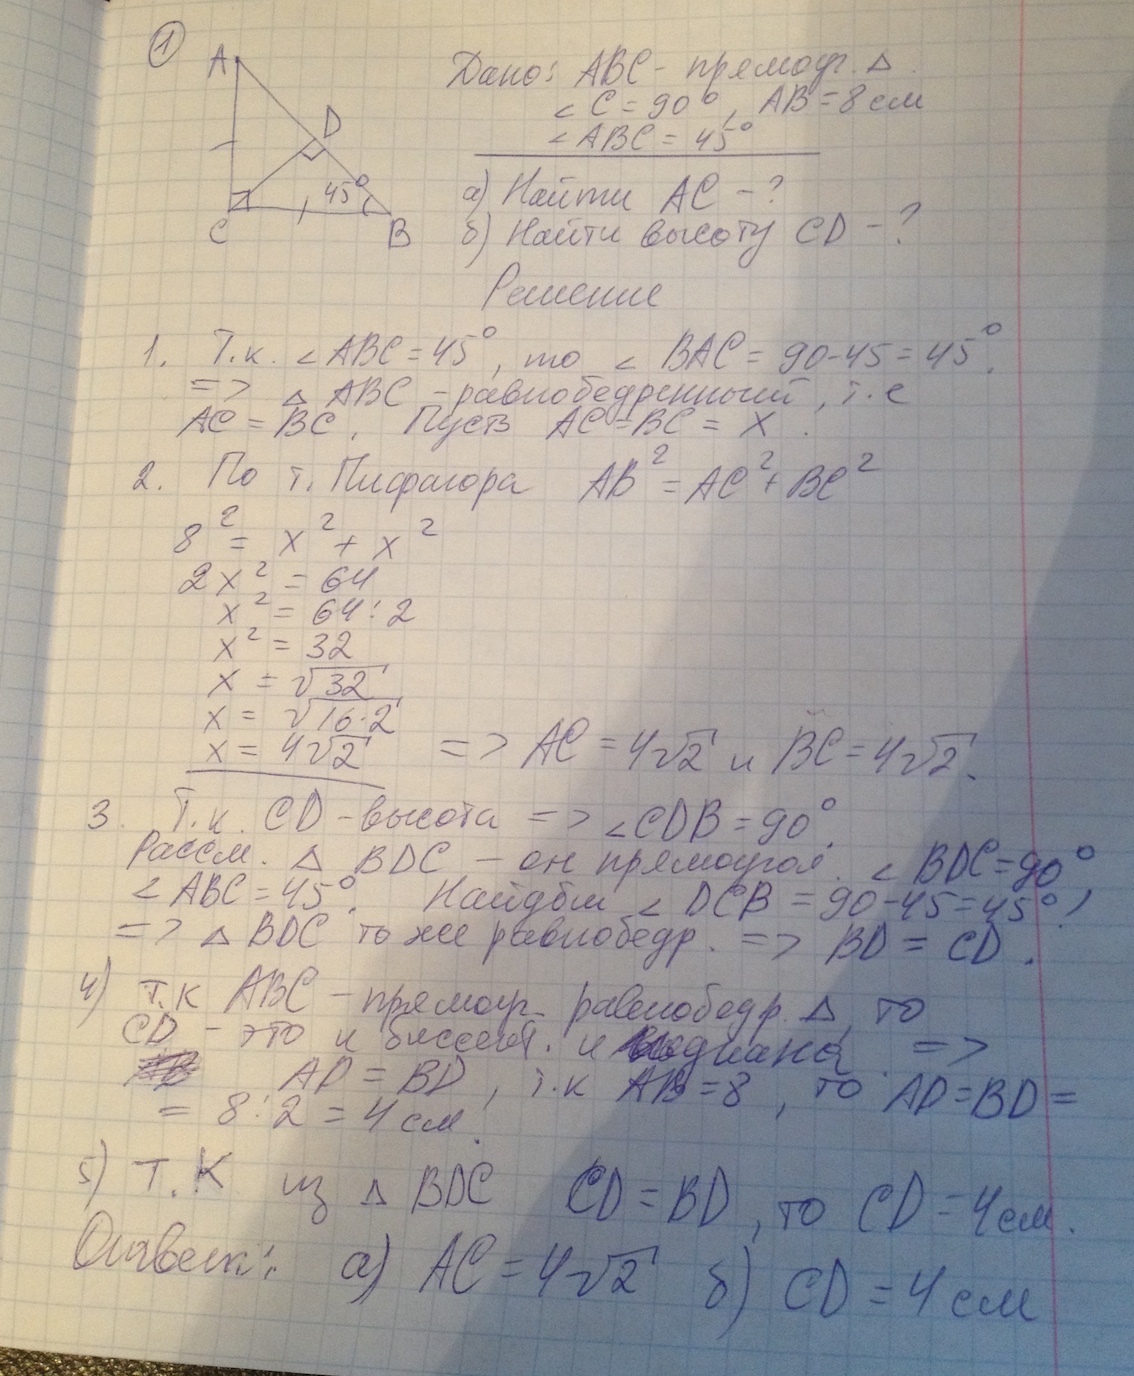 1
A
D
45°
C
B
Дано: ABC - прямоуг. △.
∠ C = 90°, AB = 8 см
∠ ABC = 45°
а) Найти AC - ?
б) Найти высоту CD - ?
Решение
1. Т.к. ∠ ABC = 45°, то ∠ BAC = 90-45 = 45°.
=> △ ABC - равнобедренный, т.е
AC = BC. Пусть AC = BC = x.
2. По т. Пифагора AB² = AC² + BC²
8² = x² + x²
2x² = 64
x² = 64:2
x² = 32
x = √32
x = √16·2
x = 4√2 => AC = 4√2 и BC = 4√2.
3. Т.к. CD - высота => ∠CDB = 90°.
Рассм. △ BDC - он прямоугол. ∠ BDC = 90°,
∠ ABC = 45°. Найдём ∠ DCB = 90-45 = 45°
=> △ BDC то же равнобедр. => BD = CD.
4) т.к ABC - прямоуг. равнобедр. △, то
CD - это и биссект. и медиана. =>
AD = BD, т.к AB = 8, то AD = BD =
= 8:2 = 4 см.
5) т.к из △ BDC CD = BD, то CD = 4 см.
Ответ: а) AC = 4√2 б) CD = 4 см